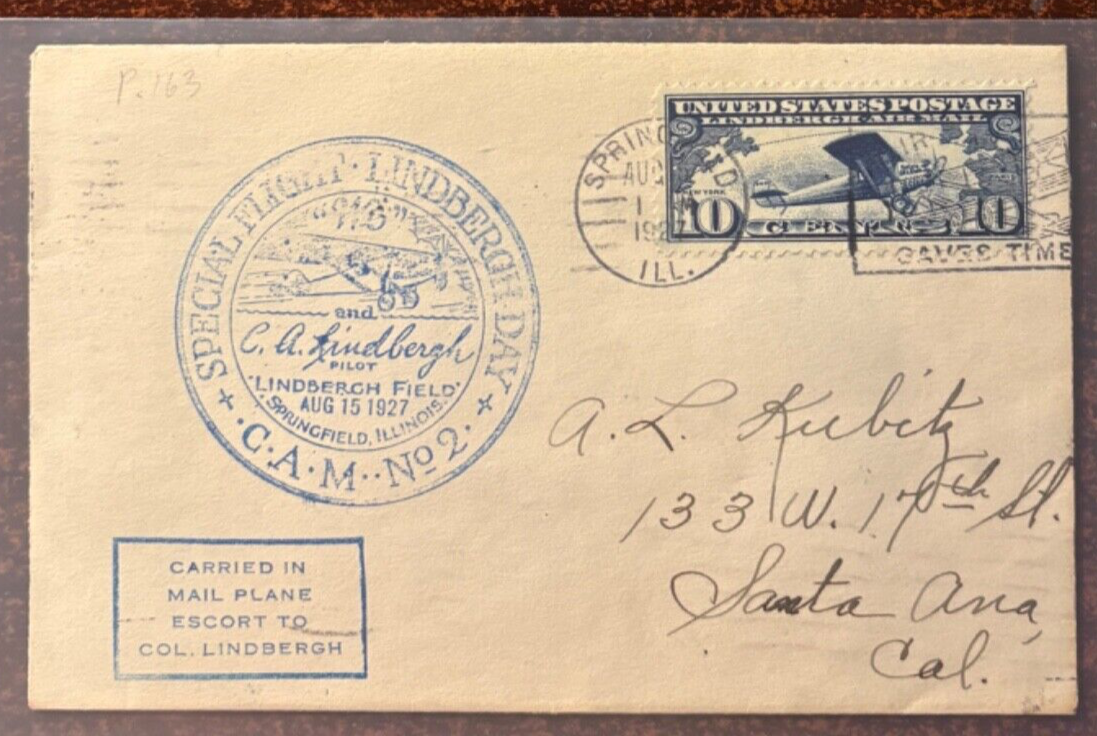 P. 163
UNITED STATES POSTAGE
LINDBERGH AIR MAIL
NEW YORK
10 10
SPRING
AUG
192
ILL.
SAVES TIME
SPECIAL FLIGHT · LINDBERGH DAY
"WE"
and
C. A. Lindbergh
PILOT
"LINDBERGH FIELD"
AUG 15 1927
SPRINGFIELD, ILLINOIS.
· C · A · M · · No 2 ·
A. L. Kubitz
133 W. 17th St.
Santa Ana,
Cal.
CARRIED IN
MAIL PLANE
ESCORT TO
COL. LINDBERGH